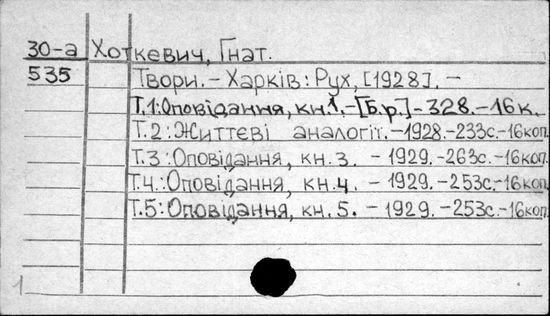 30-а Хоткевич, Гнат.
535 Твори. – Харків : Рух, [1928]. –
Т.1: Оповідання, кн.1. – [Б.р.] – 328. – 16к.
Т.2: Життєві аналогії. – 1928. – 233с. – 16коп.
Т.3: Оповідання, кн.3. – 1929. – 263с. – 16коп
Т.4.: Оповідання, кн.4. – 1929. – 253с. – 16коп
Т.5: Оповідання, кн.5. – 1929. – 253с. – 16коп
1